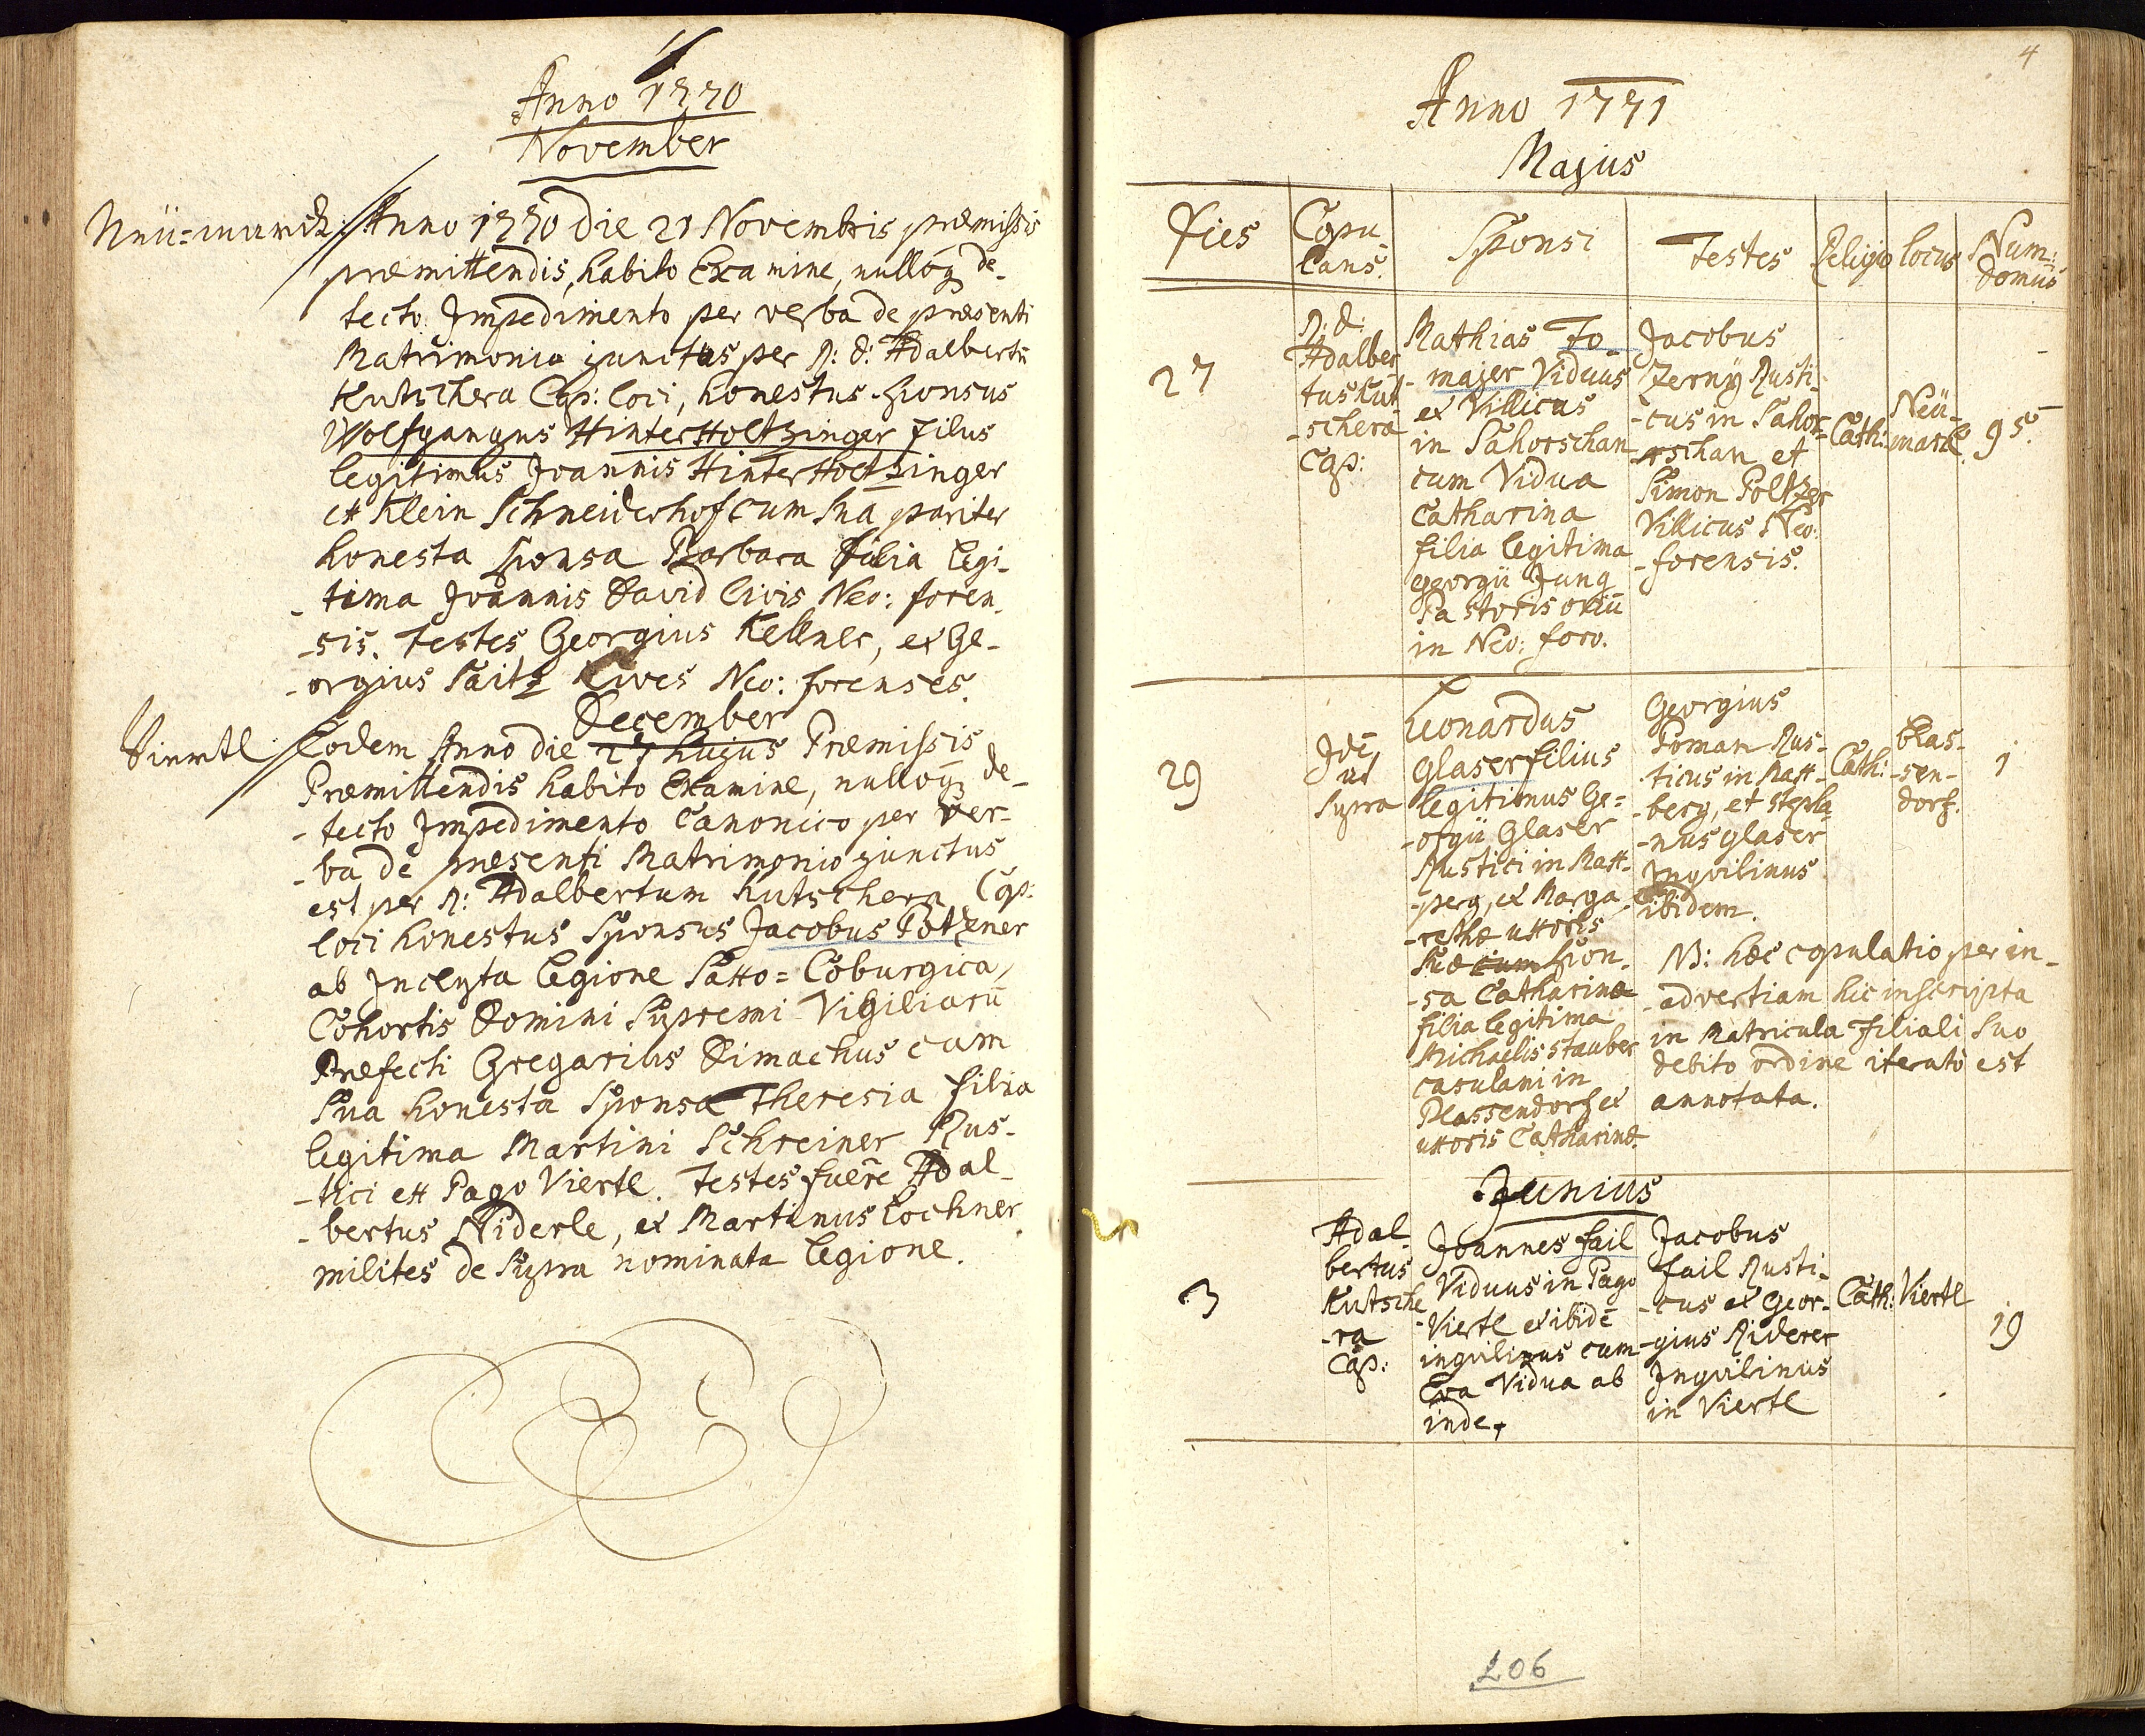 Anno 1770
November
Neü=marck: Anno 1770 die 21 Novembris præmissis
præmittendis, habito Examine, nulloq de-
tecto Impedimento per verba de præsenti
Matrimonio junctus per R: d: Adalbertū
Kutschera Cap: loci, honestus Sponsus
Wolfgangus Hinterholtzinger filus
legitimus Joannis Hinterholtzinger
ex Klein Schneiderhof cum sua pariter
honesta sponsa Barbara filia legi-
-tima Joannis David Civis Neo: foren-
-sis. testes Georgius Kellner, et Ge-
-orgius Saitz Cives Neo: forenses.
December
Viertl: Eodem Anno die 27 hujus Præmissis
Præmittendis habito Examine, nulloq de-
-tecto Impedimento Canonico per ver-
-ba de præsenti Matrimonio junctus
est per R: Adalbertum Kutschera Cap:
loci honestus Sponsus Jacobus Potzner
ab Inclyta legione Saxo=Coburgica,
Cohortis Domini Supremi Vigiliarū
Præfecti Gregarius Dimachus cum
Sua honesta Sponsa Theresia filia
legitima Martini Schreiner Rus-
-tici ex Pago Viertl. Testes fuēre Adal-
-bertus Niderle, et Martinus Lochner
milites de Supra nominata legione.
4
Anno 1771
Majus
Dies
Copu-
lans.
Sponsi
Testes
Religio
locus
Num:
domūs
27
R: d:
Adalber
tus Kut
-schera
Cap:
Mathias To-
-majer Viduus
et Villicus
in Sahorschan
cum Vidua
Catharina
filia legitima
Georgii Jung
Pastoris oviū
in Neo: foro.
Jacobus
Zerny Rusti-
-cus in Sahor-
-rschan et
Simon Poltzer
Villicus Neo:
-forensis.
Cath:
Neü-
marck.
95.
29
Idē
ut
Supra
Leonardus
Glaser filius
legitimus Ge=
-orgii Glaser
Rustici in Matt-
-perg, et Marga-
-rethæ uxoris
Suæ cum Spon-
-sa Catharina
filia legitima
Michaelis Stauber
casulani in
Plassendorf et
uxoris Catharinæ.
Georgius
Roman Rus-
-ticus in Matt-
-berg, et Stepha-
-nus Glaser
Inqvilinus
ibidem.
Cath:
blas-
-sen-
dorf.
1
NB: hæc copulatio per in-
-advertiam hic inscripta
in Matricula filiali suo
debito ordine iterato est
annotata.
Junius
3
Adal-
bertus
Kutsche
-ra
Cap:
Joannes fail
Viduus in Pago
Viertl et ibidē
inqvilinus cum
Eva Vidua ab
inde.
Jacobus
fail Rusti-
-cus et Geor-
-gius Riderer
Inqvilinus
in Viertl
Cath:
Viertl
19
206